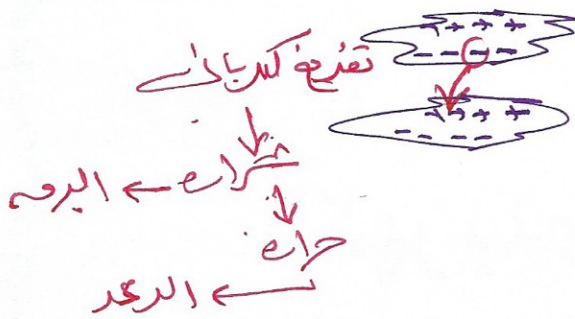 + + + +
- - - -
تفريغ كهربائي
+ + + +
- - - -
شرارة ← البرق
حرارة
← الرعد